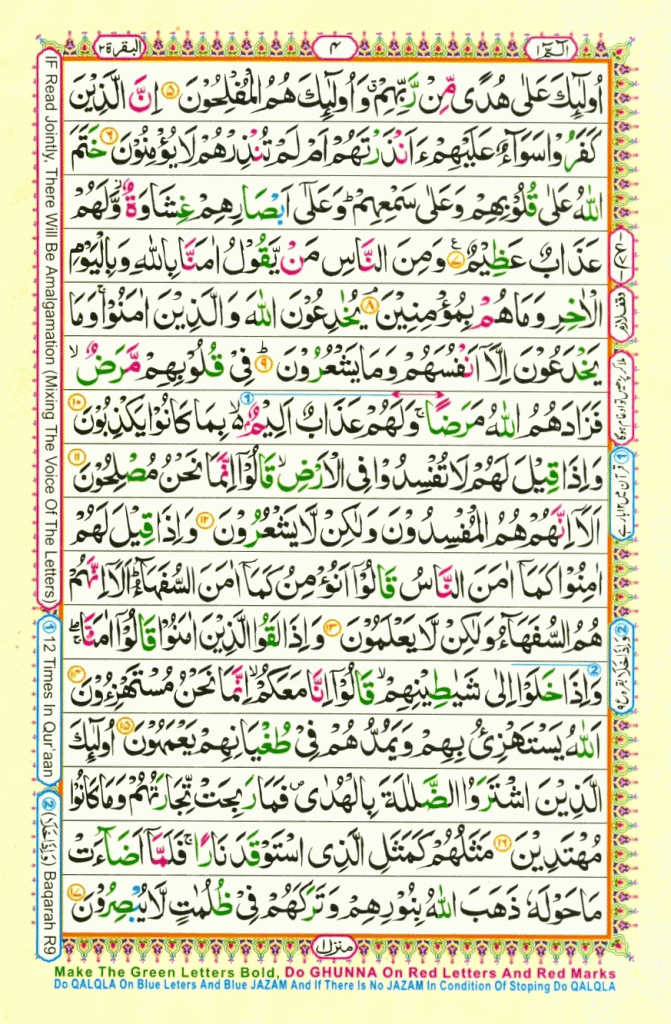 الٓمّٓ ١
٤
البقرة ٢
اُولٰٓئِكَ عَلٰى هُدًى مِّنْ رَّبِّهِمْ ۙ وَاُولٰٓئِكَ هُمُ الْمُفْلِحُوْنَ ۝۵ اِنَّ الَّذِيْنَ
كَفَرُوْا سَوَآءٌ عَلَيْهِمْ ءَاَنْذَرْتَهُمْ اَمْ لَمْ تُنْذِرْهُمْ لَا يُؤْمِنُوْنَ ۝۶ خَتَمَ
اللّٰهُ عَلٰى قُلُوْبِهِمْ وَعَلٰى سَمْعِهِمْ ؕ وَعَلٰٓى اَبْصَارِهِمْ غِشَاوَةٌ ۙ وَّلَهُمْ
عَذَابٌ عَظِيْمٌ ۝۷ وَمِنَ النَّاسِ مَنْ يَّقُوْلُ اٰمَنَّا بِاللّٰهِ وَبِالْيَوْمِ
الْاٰخِرِ وَمَا هُمْ بِمُؤْمِنِيْنَ ۝۸ يُخٰدِعُوْنَ اللّٰهَ وَالَّذِيْنَ اٰمَنُوْا ۚ وَمَا
يَخْدَعُوْنَ اِلَّآ اَنْفُسَهُمْ وَمَا يَشْعُرُوْنَ ۝۹ فِيْ قُلُوْبِهِمْ مَّرَضٌ ۙ
فَزَادَهُمُ اللّٰهُ مَرَضًا ۚ وَلَهُمْ عَذَابٌ اَلِيْمٌۢ ۙ بِمَا كَانُوْا يَكْذِبُوْنَ ۝۱۰
وَاِذَا قِيْلَ لَهُمْ لَا تُفْسِدُوْا فِي الْاَرْضِ ۙ قَالُوْٓا اِنَّمَا نَحْنُ مُصْلِحُوْنَ ۝۱۱
اَلَآ اِنَّهُمْ هُمُ الْمُفْسِدُوْنَ وَلٰكِنْ لَّا يَشْعُرُوْنَ ۝۱۲ وَاِذَا قِيْلَ لَهُمْ
اٰمِنُوْا كَمَآ اٰمَنَ النَّاسُ قَالُوْٓا اَنُؤْمِنُ كَمَآ اٰمَنَ السُّفَهَآءُ ؕ اَلَآ اِنَّهُمْ
هُمُ السُّفَهَآءُ وَلٰكِنْ لَّا يَعْلَمُوْنَ ۝۱۳ وَاِذَا لَقُوا الَّذِيْنَ اٰمَنُوْا قَالُوْٓا اٰمَنَّا ۖۚ
وَاِذَا خَلَوْا اِلٰى شَيٰطِيْنِهِمْ ۙ قَالُوْٓا اِنَّا مَعَكُمْ ۙ اِنَّمَا نَحْنُ مُسْتَهْزِءُوْنَ ۝۱۴
اَللّٰهُ يَسْتَهْزِئُ بِهِمْ وَيَمُدُّهُمْ فِيْ طُغْيَانِهِمْ يَعْمَهُوْنَ ۝۱۵ اُولٰٓئِكَ
الَّذِيْنَ اشْتَرَوُا الضَّلٰلَةَ بِالْهُدٰى ۪ فَمَا رَبِحَتْ تِّجَارَتُهُمْ وَمَا كَانُوْا
مُهْتَدِيْنَ ۝۱۶ مَثَلُهُمْ كَمَثَلِ الَّذِى اسْتَوْقَدَ نَارًا ۚ فَلَمَّآ اَضَآءَتْ
مَا حَوْلَهٗ ذَهَبَ اللّٰهُ بِنُوْرِهِمْ وَتَرَكَهُمْ فِيْ ظُلُمٰتٍ لَّا يُبْصِرُوْنَ ۝۱۷
منزل ١
وقف لازم
① قرآن میں ۱۲ بار ہے
IF Read Jointly, There Will Be Amalgamation (Mixing The Voice Of The Letters)
① 12 Times In Qur'aan
② (وَاِذَا خَلَا) Baqarah R9
Make The Green Letters Bold, Do GHUNNA On Red Letters And Red Marks
Do QALQLA On Blue Leters And Blue JAZAM And If There Is No JAZAM In Condition Of Stoping Do QALQLA